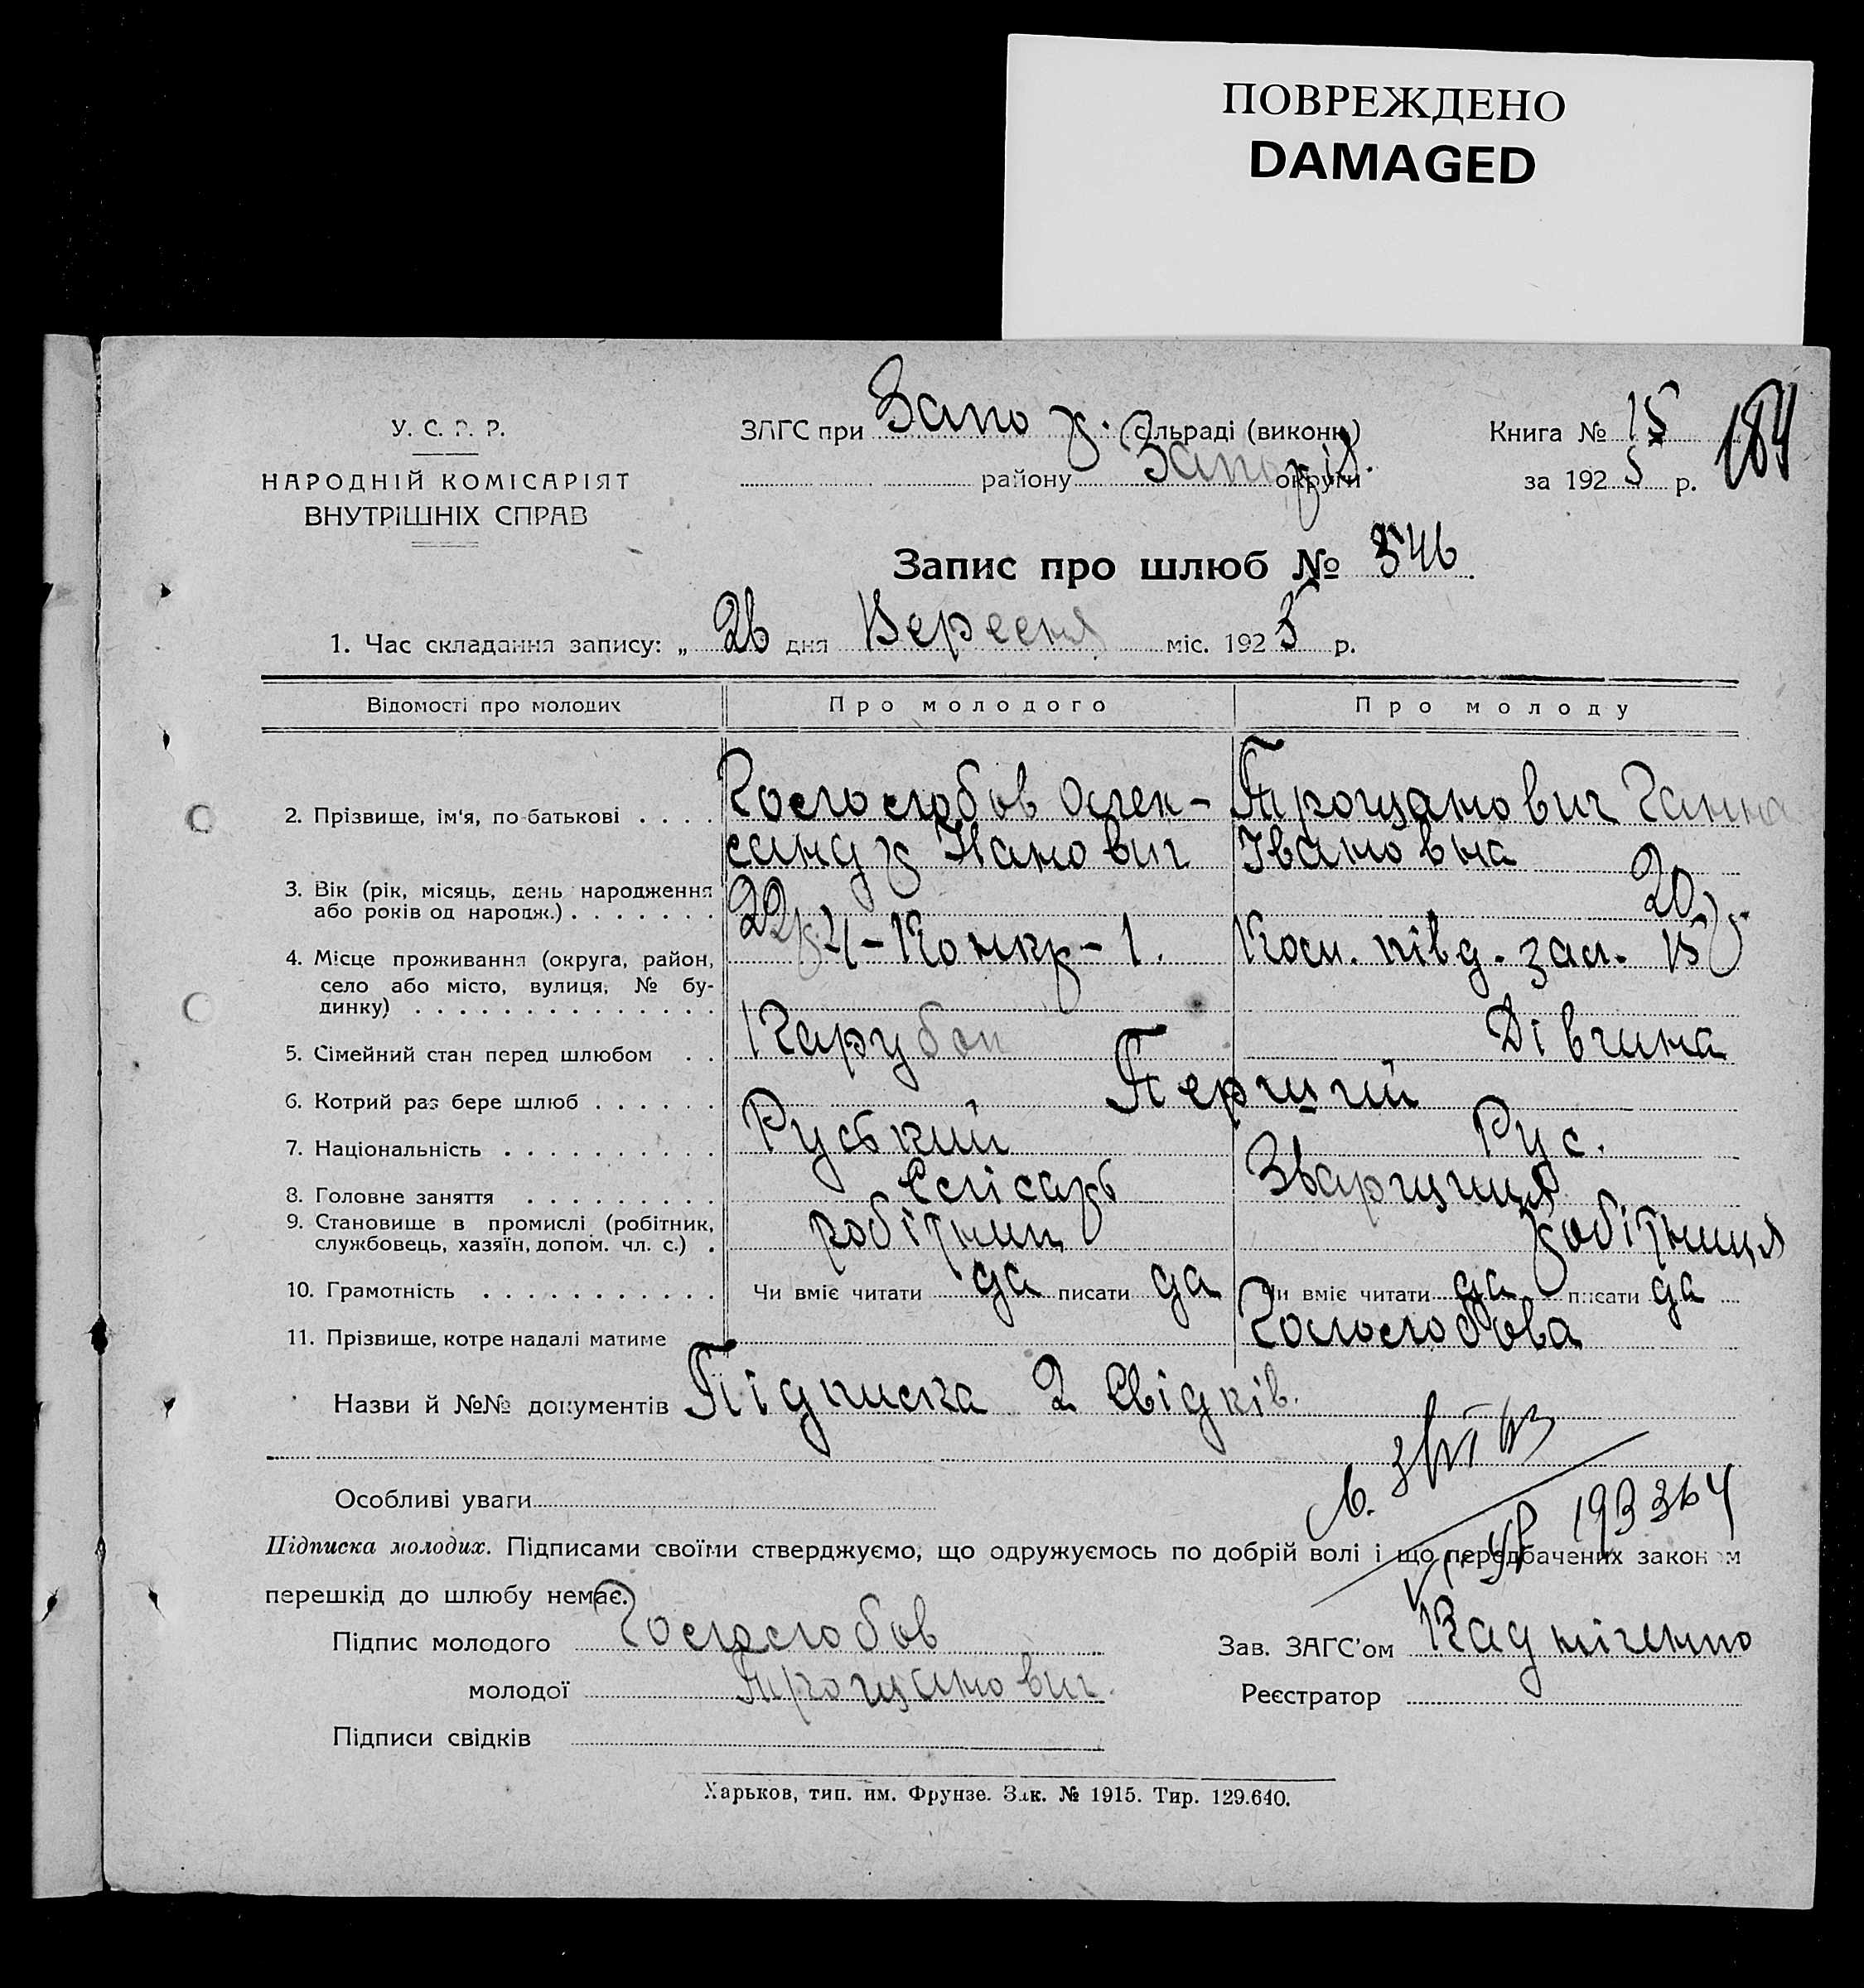 ПОВРЕЖДЕНО
DAMAGED
У. С. Р. Р.
НАРОДНІЙ КОМІСАРІЯТ
ВНУТРІШНІХ СПРАВ
ЗАГС при Запо р. Сільраді (виконк)
району Запоріз. округи
Книга № 15
за 1925 р.
184
Запис про шлюб № 546
1. Час складання запису: „ 26 дня Вересня міс. 1925 р.
Відомості про молодих Про молодого Про молоду
2. Прізвище, ім'я, по-батькові . . . . Гослослобов Олек- Трощанович Ганна
сандр Іванович Івановна
3. Вік (рік, місяць, день народження
або років од народж.) . . . . . . . 22 р 20 р.
4. Місце проживання (округа, район, 4-Конкр-1. Кам. півд. зал. 15
село або місто, вулиця, № бу-
динку) . . . . . . . . . . . . . .
5. Сімейний стан перед шлюбом . . Парубок Дівчина
6. Котрий раз бере шлюб . . . . . . Перший
7. Національність . . . . . . . . . . Руський Рус.
8. Головне заняття . . . . . . . . . Слісарь Зварщиця
9. Становище в промислі (робітник,
службовець, хазяїн, допом. чл. с.) . робітник робітниця
10. Грамотність . . . . . . . . . . . Чи вміє читати да писати да Чи вміє читати да писати да
11. Прізвище, котре надалі матиме Голослобова
Назви й №№ документів Підписка 2 свідків.
Особливі уваги
193364
Підписка молодих. Підписами своїми стверджуємо, що одружуємось по добрій волі і що передбачених законом
перешкід до шлюбу немає.
Підпис молодого Голослобов
Зав. ЗАГС'ом
молодої Трощанович.
Реєстратор
Підписи свідків
Харьков, тип. им. Фрунзе. Зак. № 1915. Тир. 129.640.